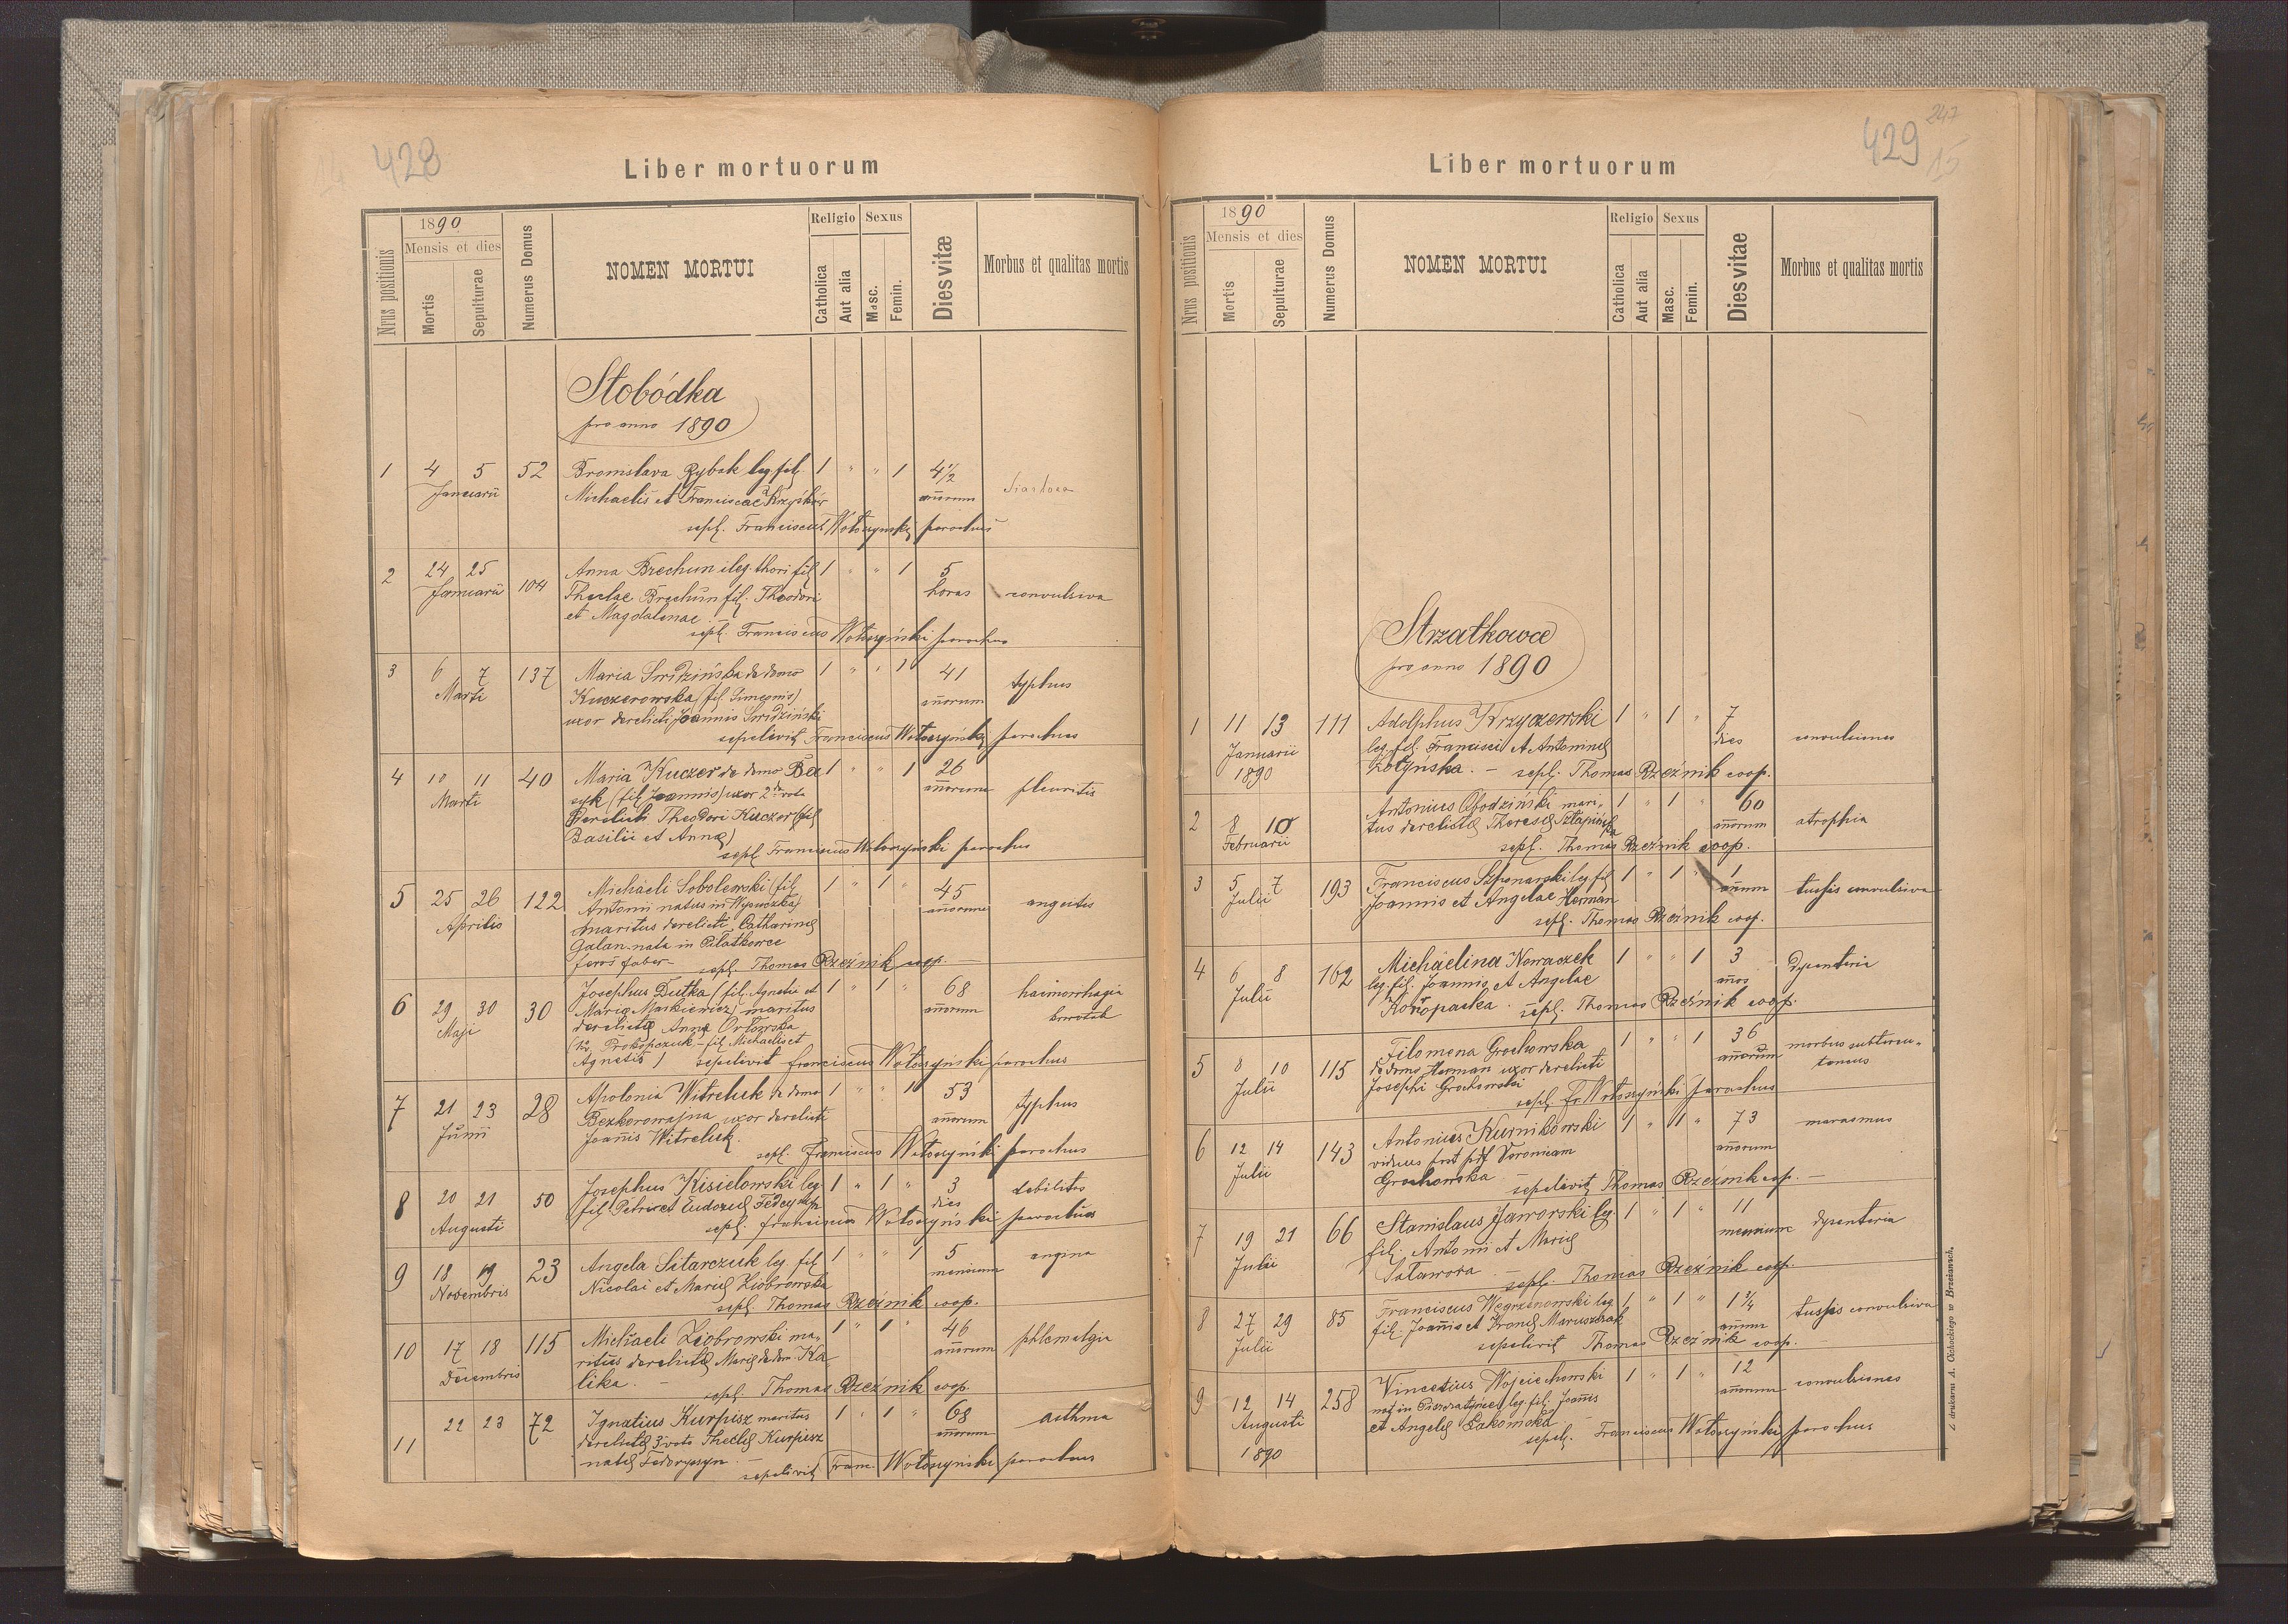 428
Liber mortuorum
1890
Mensis et dies
Nrus positionis
Mortis
Sepulturae
Numerus Domus
NOMEN MORTUI
Religio
Catholica
Aut alia
Sexus
Masc.
Femin.
Dies vitæ
Morbus et qualitas mortis
Słobódka
pro anno 1890
1 4 5 52 Bronislava Rybak leg. fil. 1 " " 1 4 1/2
Januarii Michaelis et Franciscae Krzyśków añorum
sepl. Franciscus Wołoszyński parochus
2 24 25 104 Anna Brechun ileg. thori fil 1 " " 1 5
Januarii Theclae Brechun fil. Theodori horas convulsiva
et Magdalenae
sepl. Franciscus Wołoszyński parochus
3 6 7 137 Maria Smidzińska de domo 1 " " 1 41 typhus
Marti Kuczerowska (fil. Simeonis) añorum
uxor derelicti Joannis Smidziński
sepelivit Franciscus Wołoszyński parochus
4 10 11 40 Maria Kuczer de domo Ba 1 " " 1 26 pleuritis
Marti syk (fil. Joannis) uxor 2do voto añorum
derelicti Theodori Kuczer (fil
Basilii et Annæ)
sepl Franciscus Wołoszyński parochus
5 25 26 122 Michaeli Sobolewski (fil 1 " 1 " 45
Aprilis Antonii natus in Wysuczka) añorum
maritus derelicti Catharinæ
Galan nata in Piłatkowce
faber
sepl. Thomas Rzeźnik coop.
6 29 30 30 Josephus Dutka (fil. Agnetis et 1 " 1 " 68 haimorrhagia
Maji Mariæ Markiewicz) maritus añorum
derelictæ Annæ
Prokopczuk - fil. Michaelis et
Agnetis) sepelivit Franciscus Wołoszyński parochus
7 21 23 28 Apolonia Witreluk de domo 1 " " 1 53 typhus
Junii Bezkorowajna uxor derelicti añorum
Joañis Witreluk.
sepl. Franciscus Wołoszyński parochus
8 20 21 50 Josephus Kisielowski leg 1 " 1 " 3 debilitas
Augusti fil. Petri et Eudoxiæ dies
sepl. Franciscus Wołoszyński parochus
9 18 19 23 Angela Sitarczuk leg fil 1 " " 1 5 angina
Novembris Nicolai et Mariæ Ziobrowska mensium
sepl. Thomas Rzeźnik coop.
10 17 18 115 Michaeli Ziobrowski ma- 1 " 1 " 46
Decembris ritus derelictæ Mariæ de dom. Ka añorum
lika.
sepl. Thomas Rzeźnik coop.
11 22 23 72 Ignatius Kurpisz maritus 1 " 1 " 68 asthma
derelictæ 3 voto Theclæ Kurpisz añorum
natæ Fedoryszyn
sepelivit Franc. Wołoszyński parochus
247
429
15
Liber mortuorum
1890
Mensis et dies
Nrus positionis
Mortis
Sepulturae
Numerus Domus
NOMEN MORTUI
Religio
Catholica
Aut alia
Sexus
Masc.
Femin.
Dies vitae
Morbus et qualitas mortis
Strzałkowce
pro anno 1890
1 11 13 111 Adolphus Krzyczewski 1 " 1 " 7
Januarii leg. fil. Francisci et Antoninæ dies convulsiones
1890 sepl. Thomas Rzeźnik coop.
2 8 10 Antonius Obodziński mari- 1 " 1 " 60
Februarii tus derelictæ Theresæ añorum atrophia
sepl. Thomas Rzeźnik coop.
3 5 7 193 Franciscus Szponarski leg fil 1 " 1 " 1
Julii Joannis et Angelae Herman añum tussis convulsiva
sepl. Thomas Rzeźnik coop.
4 6 8 162 Michaelina Nowaczek 1 " " 1 3 dysenteria
Julii leg. fil. Joannis et Angelae años
Koropacka. sepl. Thomas Rzeźnik coop.
5 8 10 115 Filomena Grochowska 1 " " 1 36 morbus subtercu-
Julii de domo Herman uxor derelicti añorum taneus
Josephi Grochowski
sepl. Fr Wołoszyński parochus
6 12 14 143 Antonius Kurnikowski 1 " 1 " 73 marasmus
Julii viduus post Veronicam añorum
Grochowska
sepelivit Thomas Rzeźnik coop.
7 19 21 66 Stanislaus Jaworski leg. 1 " 1 " 11
Julii fil. Antonii et Mariæ mensium dysenteria
Satawora
sepl. Thomas Rzeźnik coop.
8 27 29 85 Franciscus Węgrzanowski leg 1 " 1 " 1 3/4
Julii fil. Joañis et Maruszczak añum tussis convulsiva
sepelivit Thomas Rzeźnik coop.
9 12 14 258 Vincetius Wojciechowski 1 " 1 " 12
Augusti leg. fil. Joañis añorum convulsiones
1890 et Angelæ Łakomska
sepel. Franciscus Wołoszyński parochus
Z drukarni A. Ochockiego w Brzeżanach.